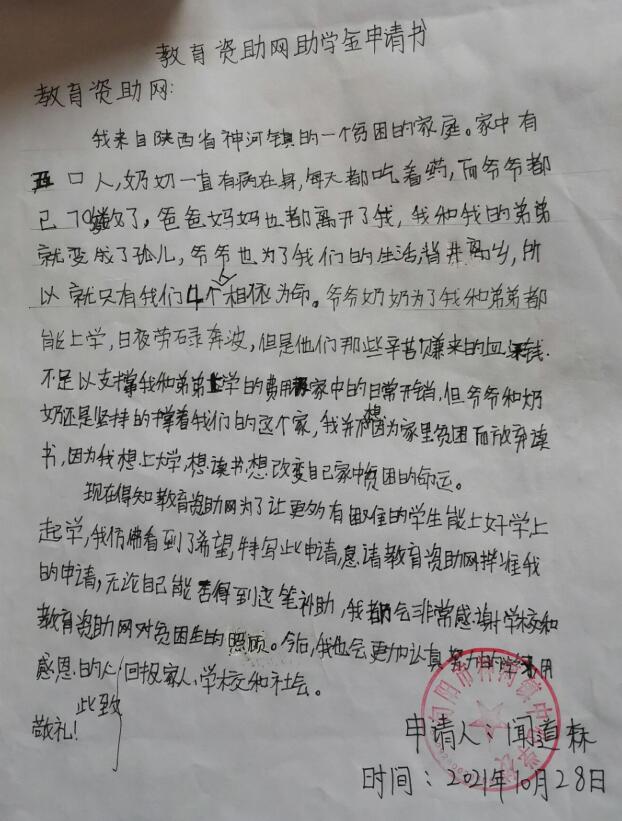 教育资助网助学金申请书
教育资助网:
我来自陕西省神河镇的一个贫困的家庭。家中有
五口人,奶奶一直有病在身,每天都吃着药,而爷爷都
已70多岁了,爸爸妈妈也都离开了我,我和我的弟弟
就变成了孤儿,爷爷也为了我们的生活,背井离乡,所
以就只有我们4个相依为命。爷爷奶奶为了我和弟弟都
能上学,日夜劳碌奔波,但是他们那些辛苦赚来的血汗钱.
不足以支撑我和弟弟上学的费用和家中的日常开销.但爷爷和奶
奶还是坚持的撑着我们的这个家,我并不想因为家里贫困而放弃读
书,因为我想上大学,想读书,想改变自己家中贫困的命运。
现在得知教育资助网为了让更多有困难的学生能上好学上
起学,我仿佛看到了希望,特写此申请,恳请教育资助网批准我
的申请,无论自己能否得到这笔补助,我都会非常感谢学校和
教育资助网对贫困生的照顾。今后,我也会更加认真努力的学习用
感恩的心回报家人、学校和社会。
此致
敬礼!
申请人:闻道森
时间:2021年10月28日